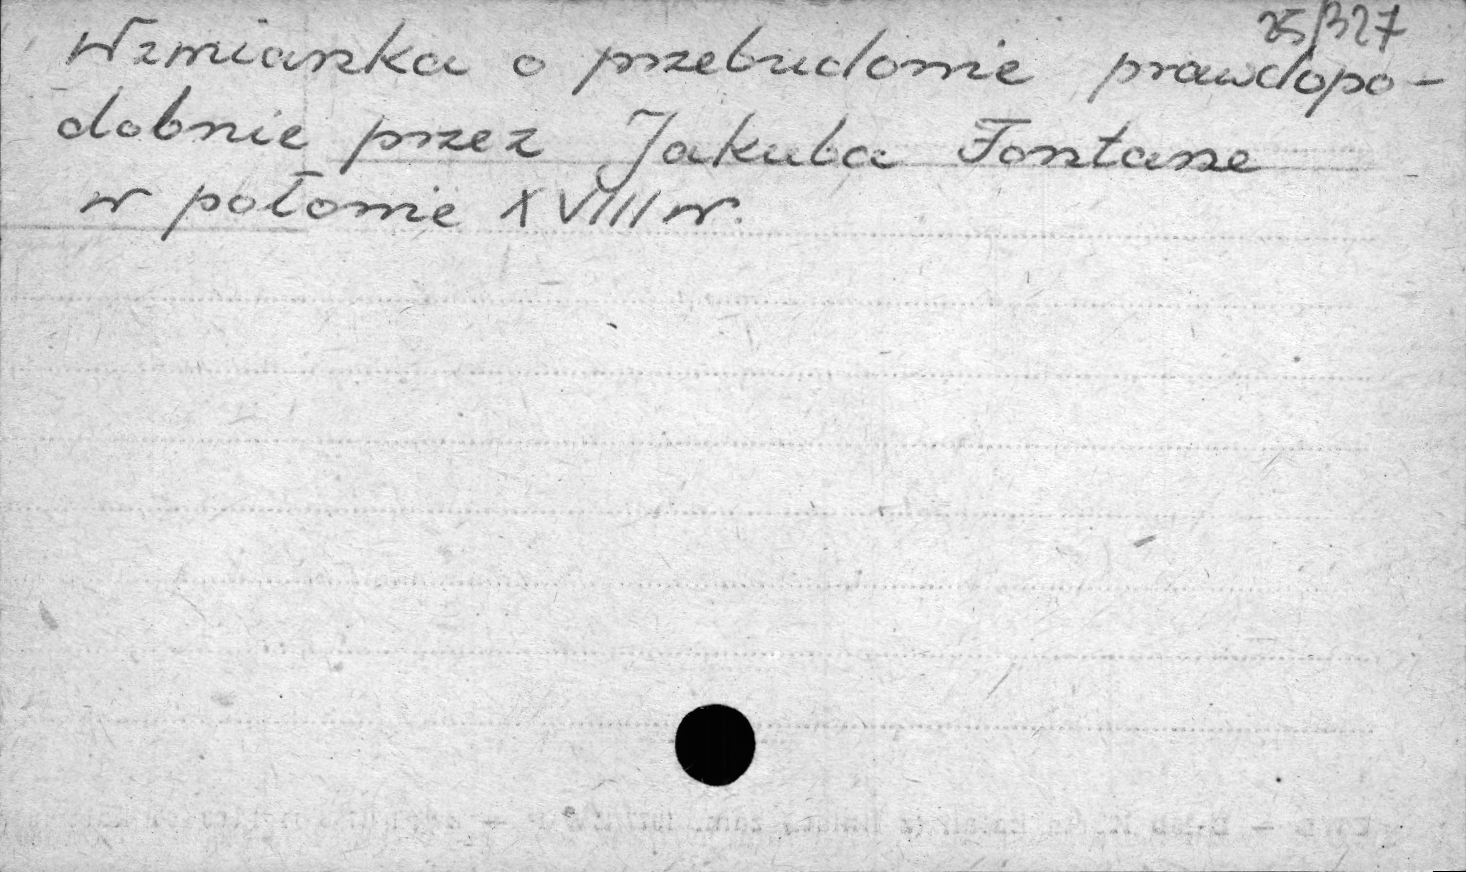 25/327
Wzmianka o przebudowie prawdopo-
dobnie przez Jakuba Fontanę
w połowie XVIII w.